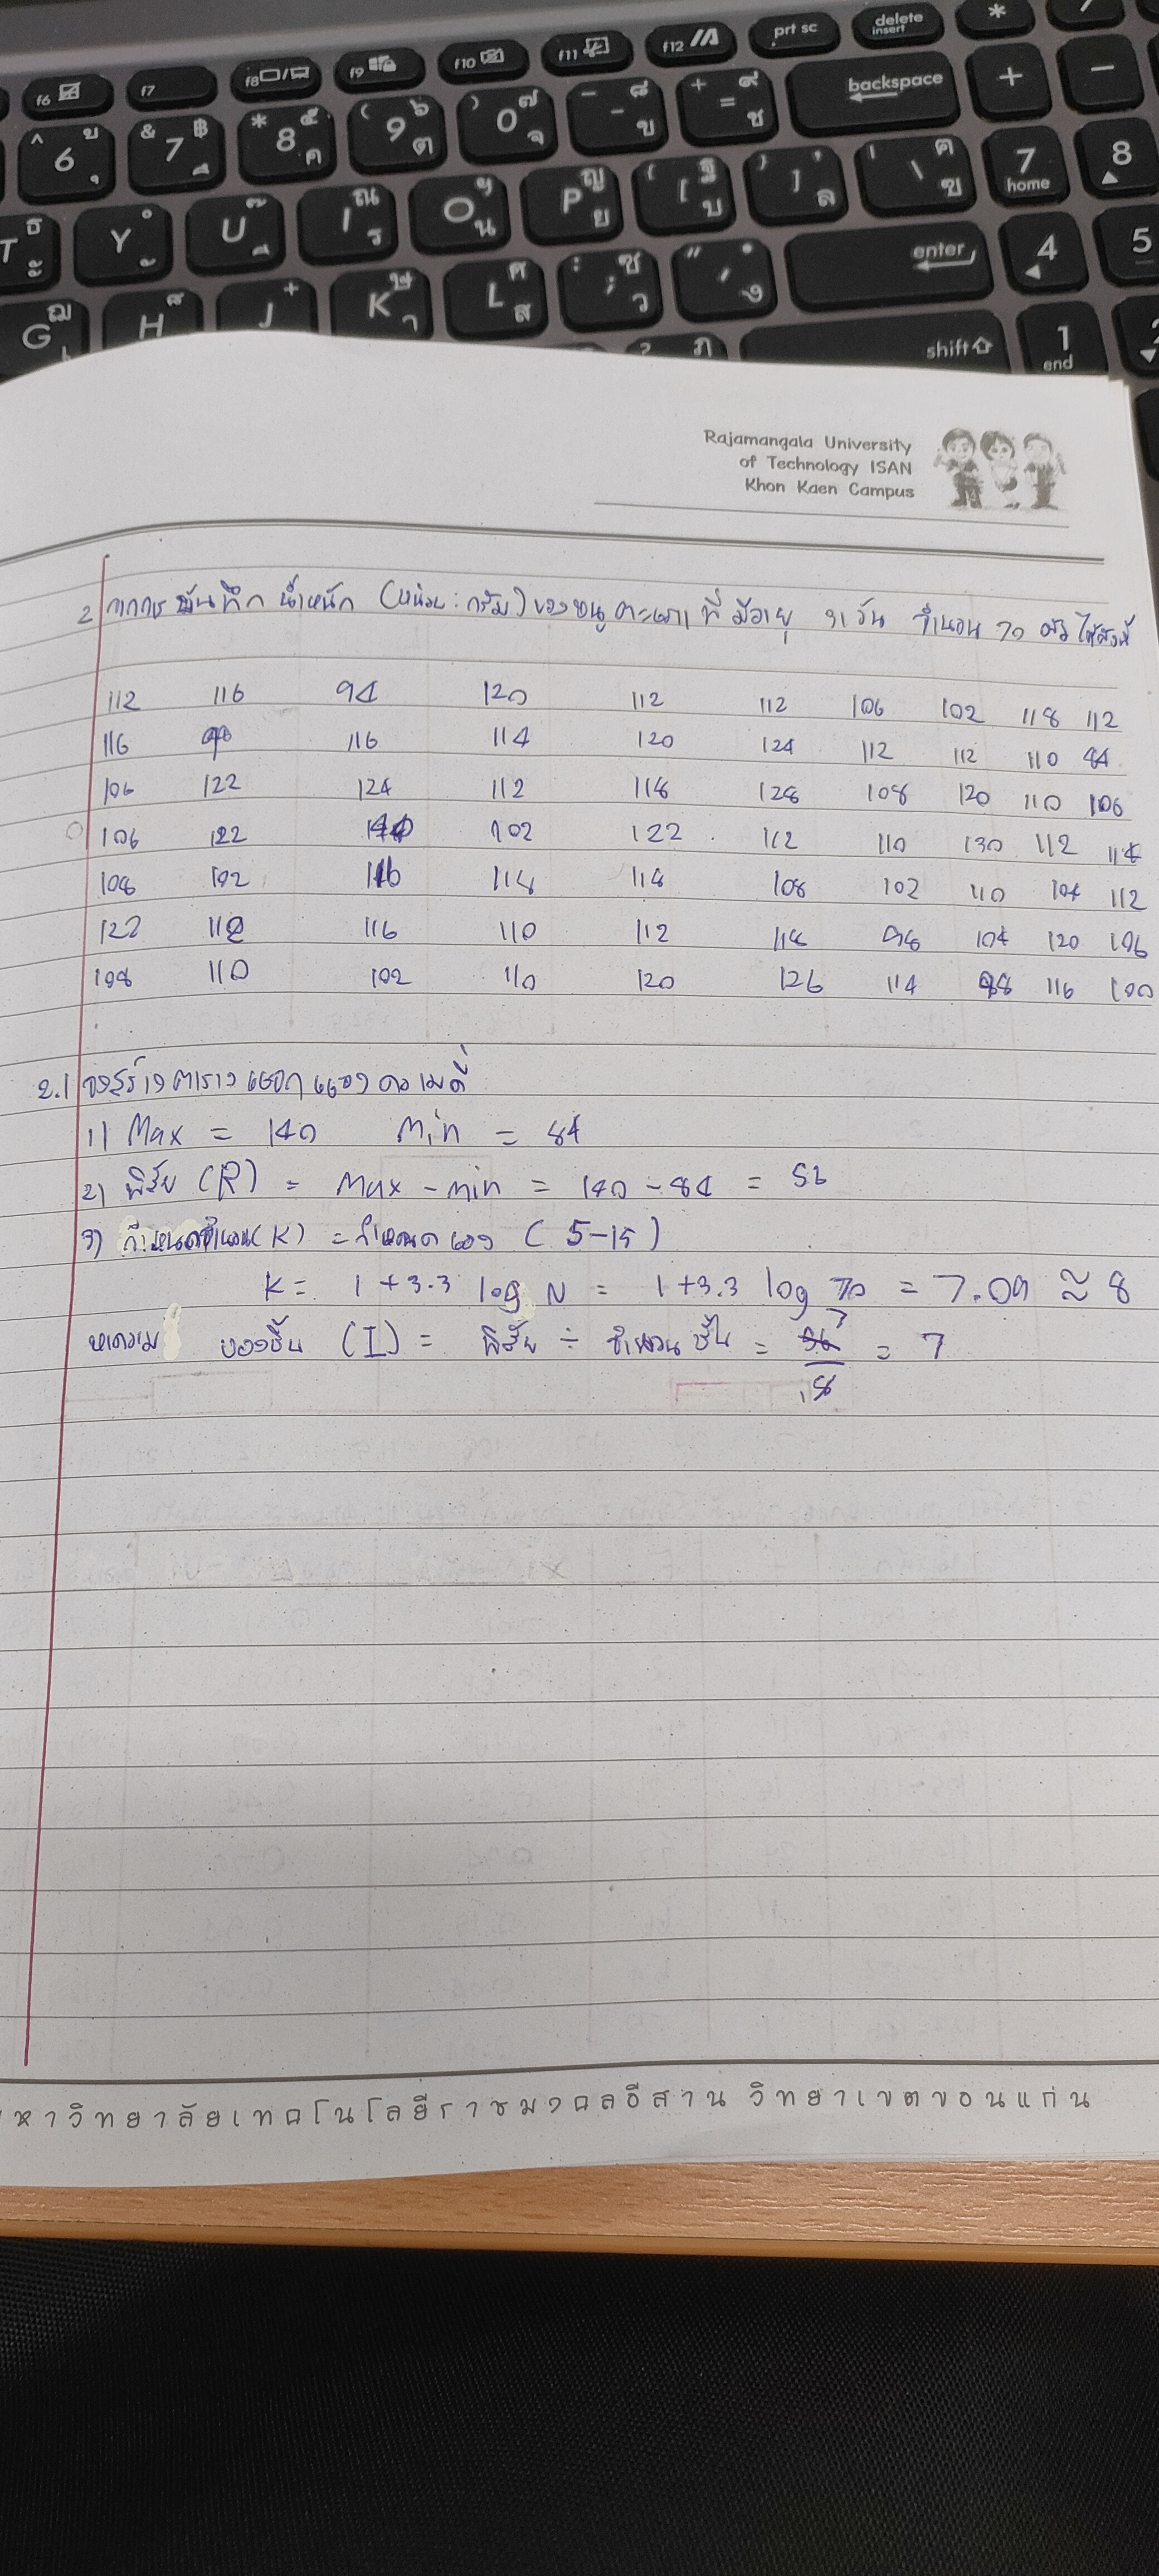 f6 f7 f8 f9 f10 f11 f12 prt sc delete insert *
^ 6 & 7 ฿ * 8 ๕ ค ( 9 ๖ ต ) 0 ๗ จ - ๘ ข + = ๙ ช backspace + -
T ธ ะ Y U I ณ ร O ฯ น P ญ ย [ ฐ บ ] , ล \ ฅ ฃ 7 home 8
G ฌ H J K ษ า L ศ ส : ; ซ ว " ' . ง enter 4 5
? ฦ shift 1 end
Rajamangala University
of Technology ISAN
Khon Kaen Campus
2 จากการบันทึก น้ำหนัก (หน่วย : กรัม) ของหนูตะเภา ที่ มีอายุ 31 วัน จำนวน 70 ตัว ได้ดังนี้
112 116 94 120 112 112 106 102 118 112
116 116 114 120 124 112 112 110 84
106 122 124 112 118 128 108 120 110 106
106 122 140 102 122 112 110 130 112
108 102 116 114 118 108 102 110 104 112
122 112 116 110 112 118 98 104 120 106
108 110 102 110 120 126 114 98 116 100
2.1 จงสร้างตารางแจกแจงความถี่
1) Max = 140 Min = 84
2) พิสัย (R) = Max - min = 140 - 84 = 56
3) กำหนดจำนวน (K) = กำหนดเอง (5-15)
K = 1 + 3.3 log N = 1 + 3.3 log 70 = 7.09 ≈ 8
หาความ ของชั้น (I) = พิสัย ÷ จำนวนชั้น = 56/8 = 7
หาวิทยาลัยเทคโนโลยีราชมงคลอีสาน วิทยาเขตขอนแก่น